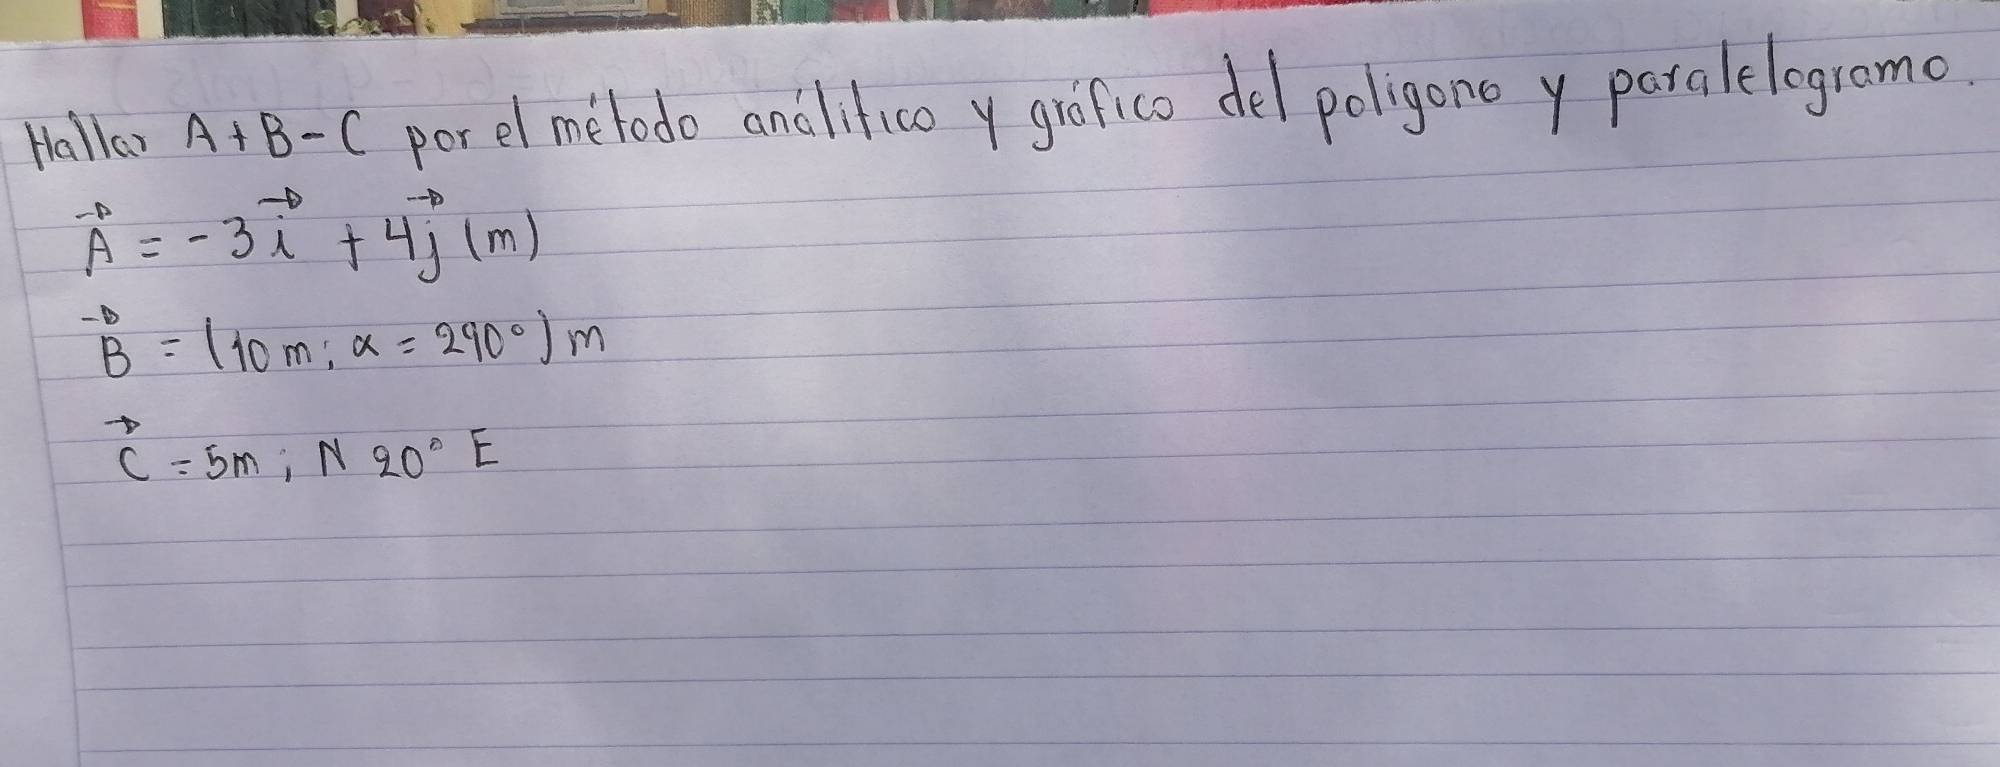 Hallar A + B - C por el método análitico y gráfico del poligono y paralelogramo.
A⃗ = -3i⃗ + 4j⃗ (m)
B⃗ = (10m; α = 290°) m
C⃗ = 5m; N 20° E